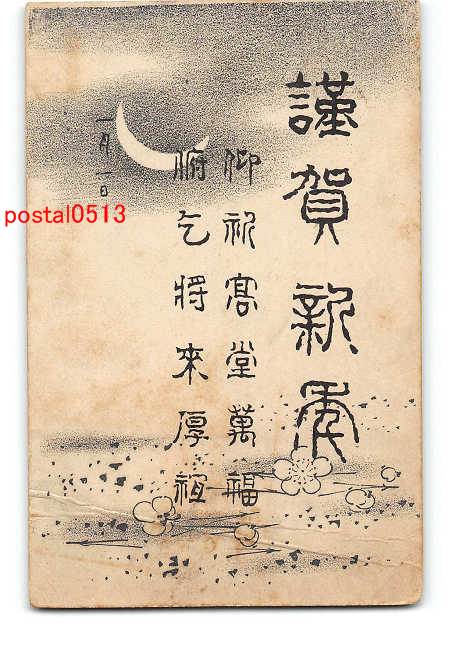 謹賀新年
仰祈高堂萬福
俯乞將來厚誼
一月一日
postal0513